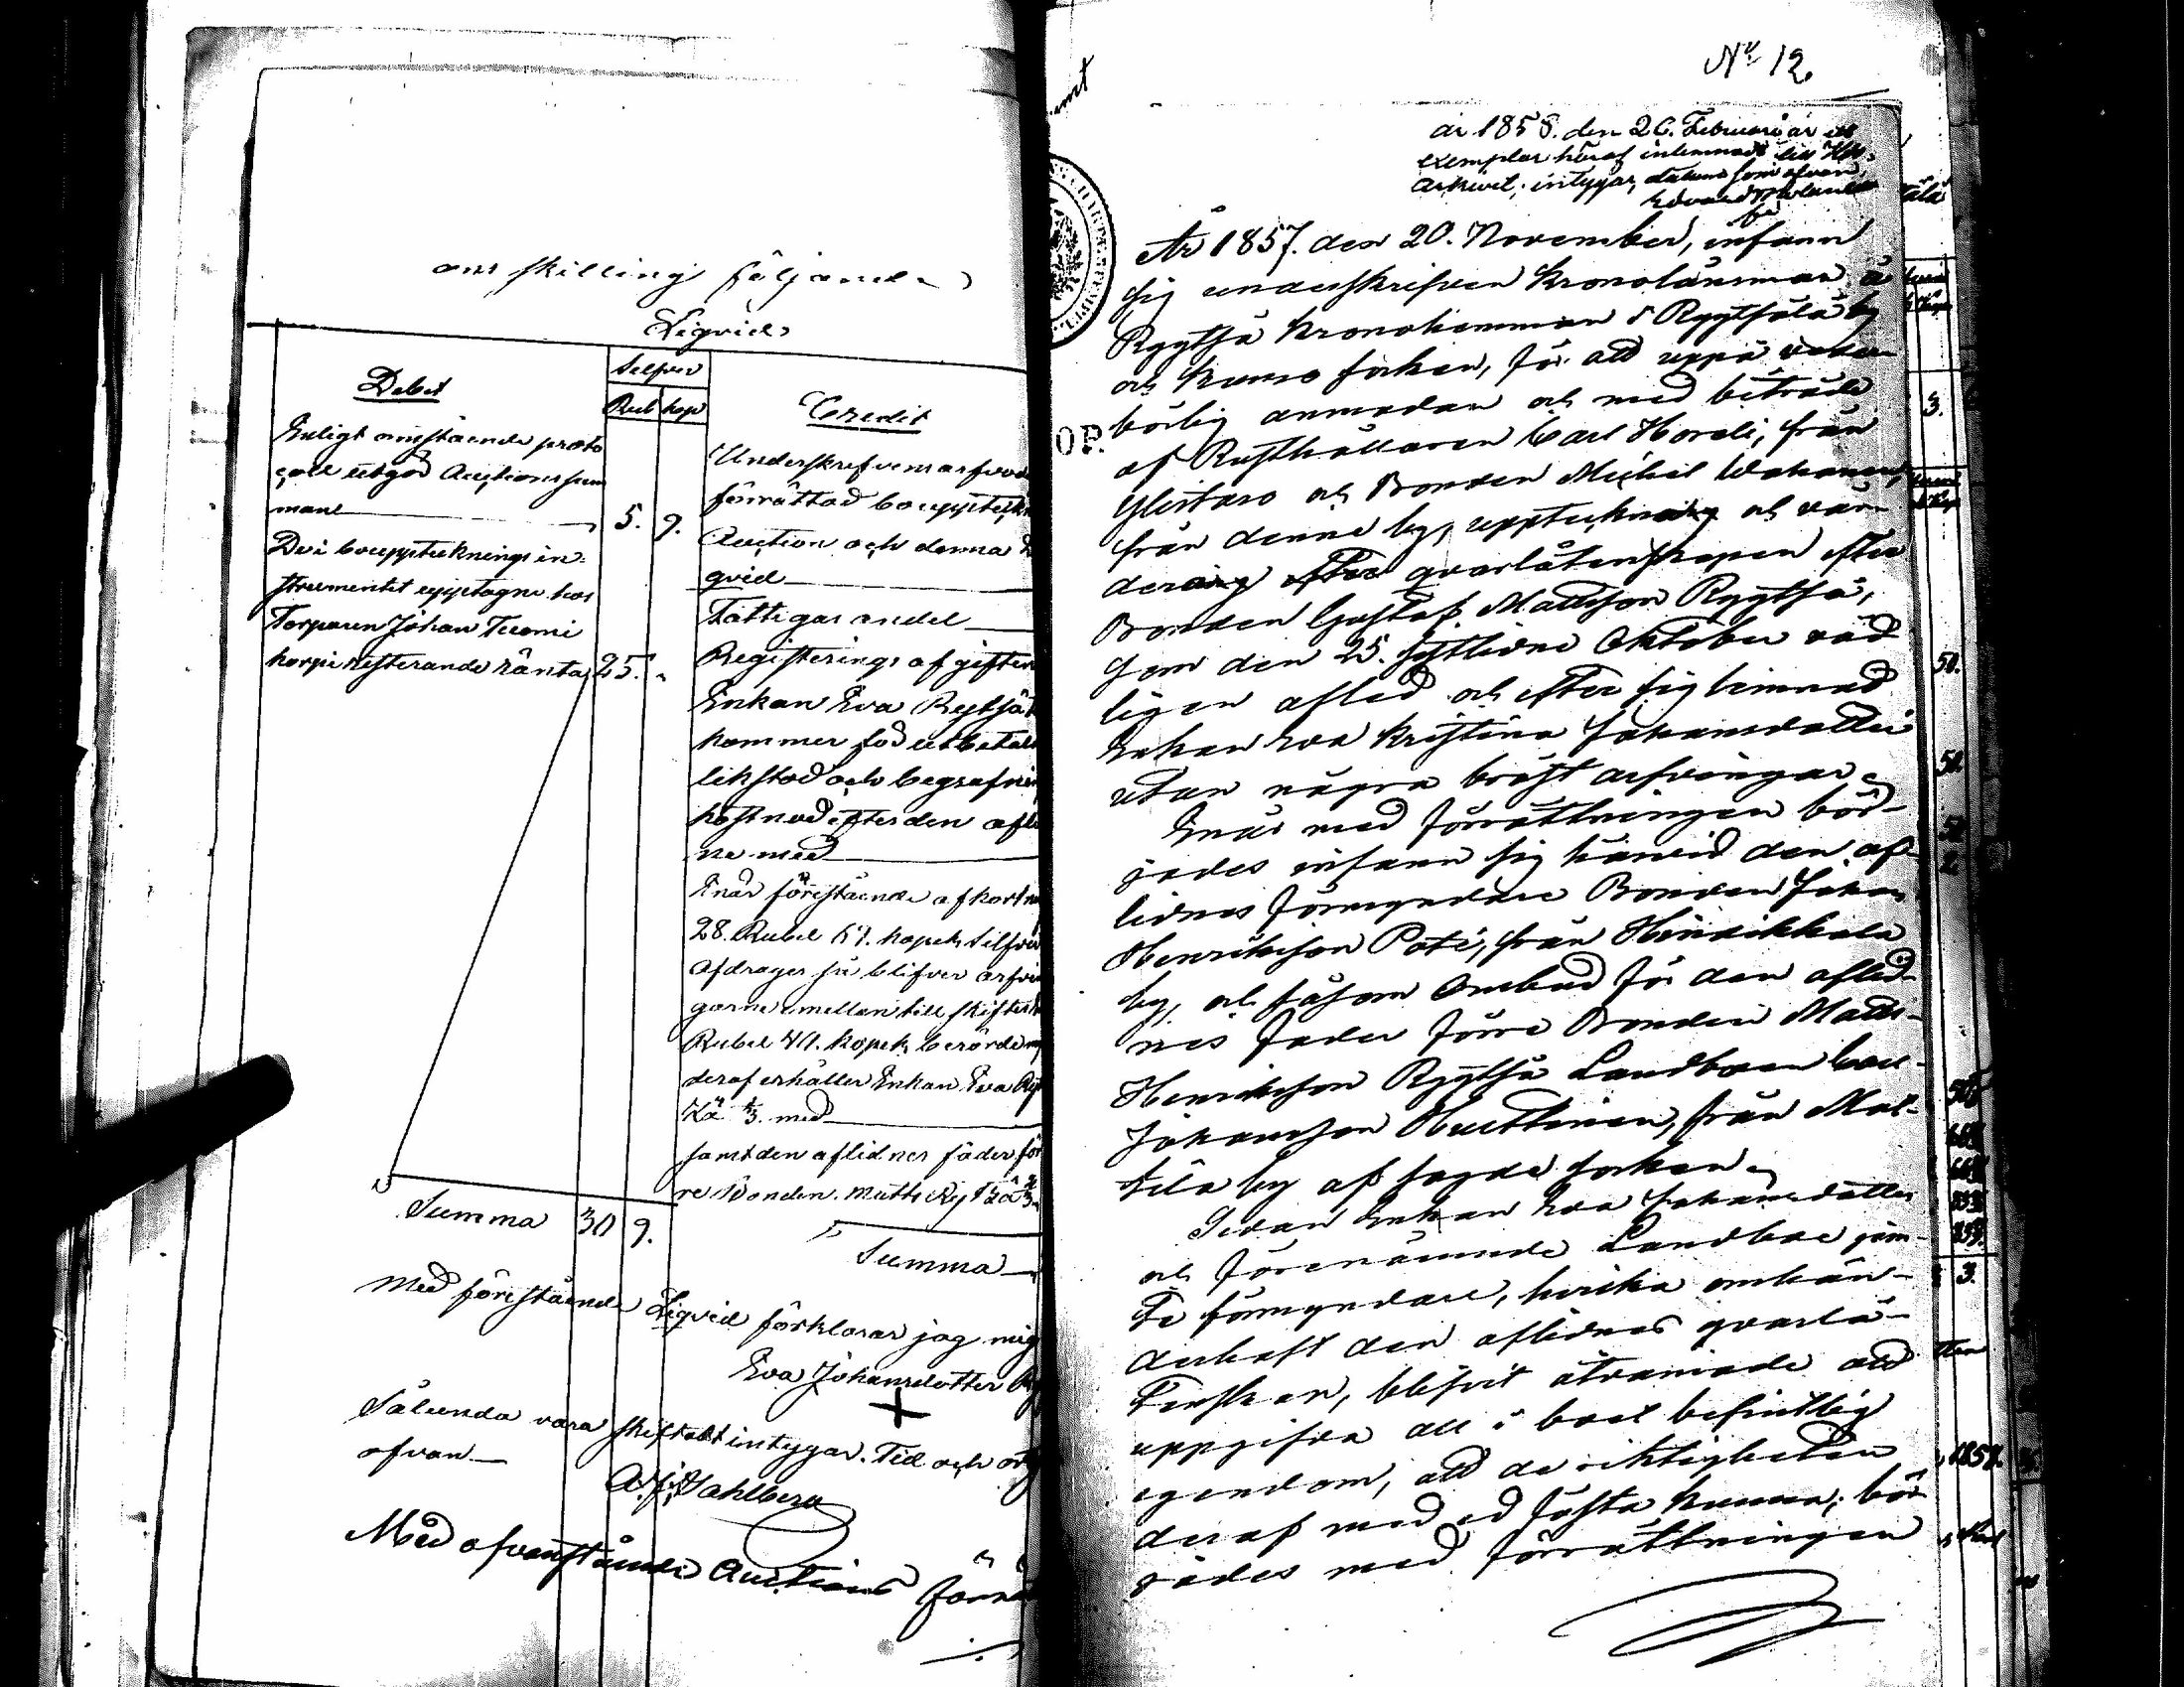 ans skilling följande
Liqvid
Debet
Silfver
Rub kop
Credit
Enligt omstående proto
coll utgör Auctionssum
man 5. 9.
De i bouppteknings in-
strumentet upptagne hos
Torparen Johan Tuomi
korpi resterande ränta 25. "
Underskrefvens arfvode
förrättad bouppteckn
Auction och denna Li
qvid
Fattigas andel
Registerings afgiften
Enkan Eva Rygtsä
kommer för utbetalt
likstod och begrafnings
kostnad efter den afli
ne med
Enär förestående afkortn
28. Rubel 57. kopek silfver
afdrages så blifver arfvin
garne emellan till skiftes
Rubel kopek, berörde
deraf erhåller Enkan Eva Ryt
zä 1/3 med
samt den aflidnes fader för
re Bonden Matts Rytzä
Summa 30 9.
Summa
Med förestående Liqvid förklarar jag mig
Eva Johansdotter
Sålunda vara skiftadt intygar. Tid och ort
ofvan
Dahlberg
Med ofvanstående Auctions förrä
No 12
år 1858. den 26. Februari är ett
exemplar häraf inlemnadt till
arkivet; intygar, datum som ofvan,
Edvard
OP.
År 1857. den 20. November, infann
sig underskrifven Kronolänsman å
Rygtsä Kronohemman i Rygtsälä by
och Kumo socken, för att uppå veder-
börlig anmodan och med biträde
af Rusthållaren Carl Horeli, från
Ylistaro och Bonden Michel Wakanen,
från denne by, uppteckning och vär-
dering efter qvarlåtenskapen efter
Bonden Gustaf Mattsson Rygtsä,
som den 25. sistlidne Oktober död-
ligen afled och efter sig lemnad
Enkan Eva Kristina Johansdotter
utan några bröst arfvingar.
Enär med förrättningen bör-
jades infann sig härvid den af-
lidnes förmyndare Bonden Johan
Henriksson Poti, från Hinrikkala
by, och såsom Ombud för den aflid-
nes fader förre Bonden Matts
Henriksson Rygtsä Landboen Carl
Johansson Huttinen, från Mat-
tila by af sagde socken.
Sedan Enkan Eva Johansdotter
och förenämnde Landboe jem-
te förmyndare, hvilka omhän-
derhaft den aflidnes qvarlå-
tenskap, blifvit åtvarnade att
uppgifva all i boet befintlig
egendom, att de riktigheten
deraf med ed fästa kunna; bör-
jades med förrättningen